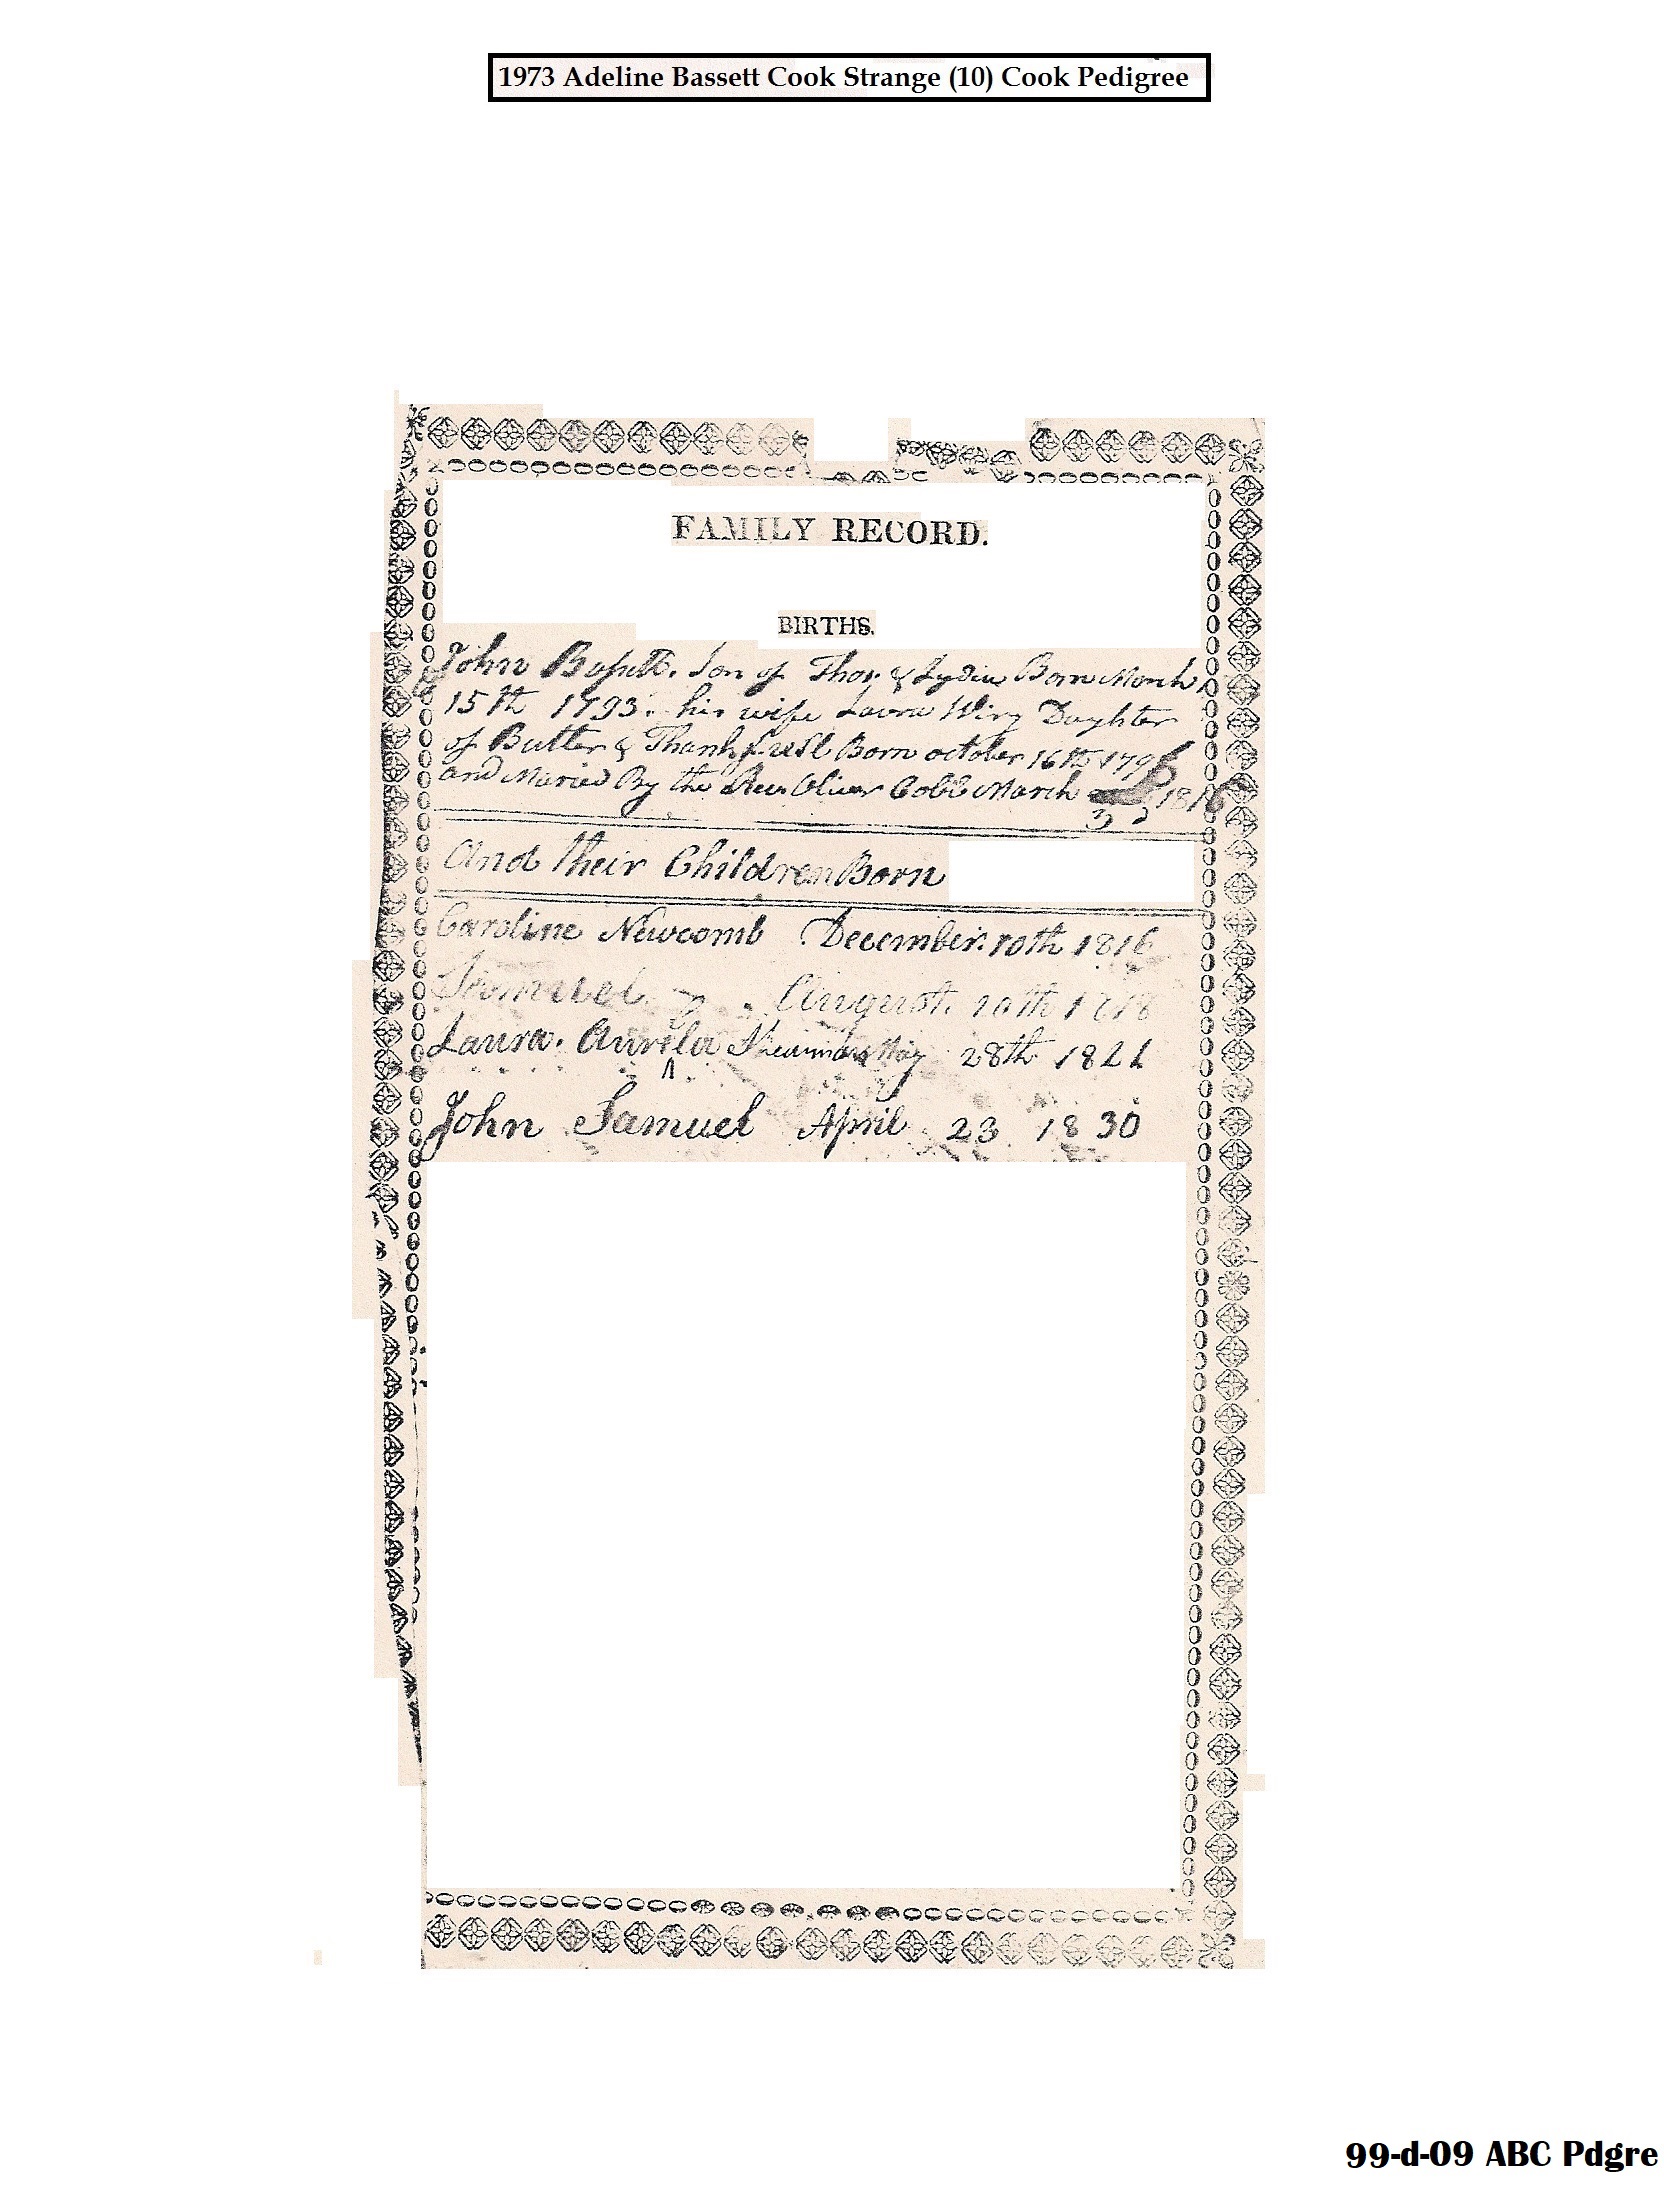 1973 Adeline Bassett Cook Strange (10) Cook Pedigree
FAMILY RECORD.
BIRTHS.
John Bassett. Son of Thos. & Lydia Born March
15th 1793. his wife Laura Wing Daughter
of Butler & Thankfull Born october 16th 1796
and Maried By the Rev Oliver Cobb March 1816
3 d
And their Children Born
Caroline Newcomb December. 10th 1816
Samuel August. 10th 1818
Laura. Aurila May 28th 1821
^
John Samuel April 23 1830
99-d-09 ABC Pdgre